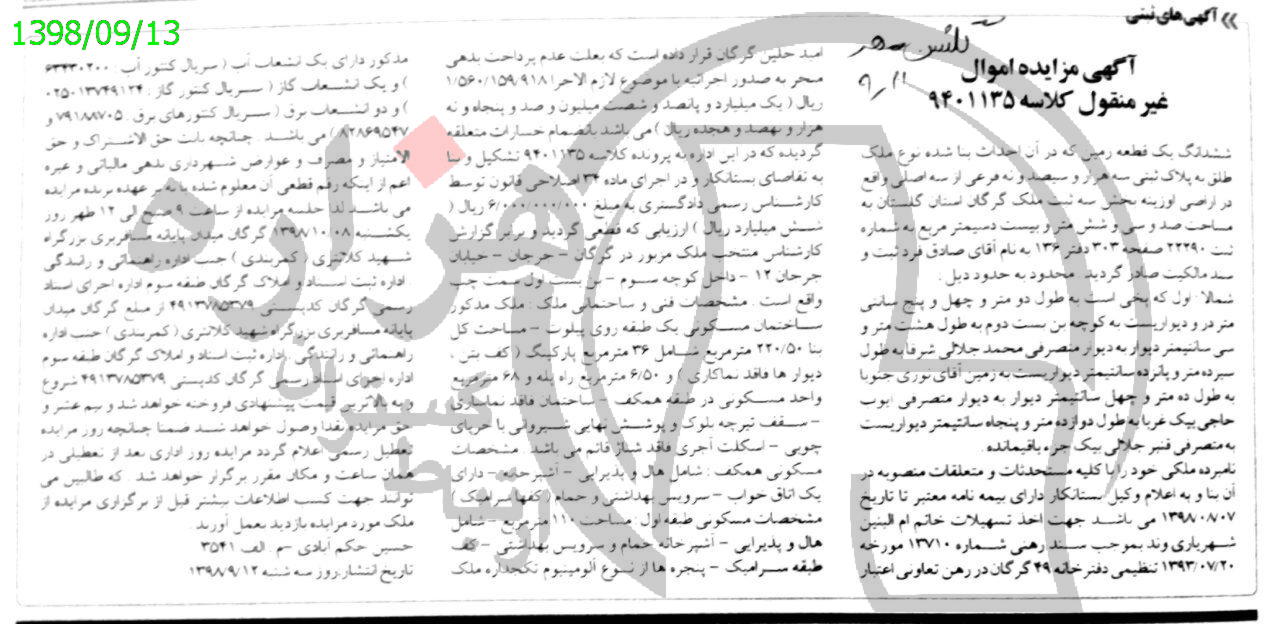 1398/09/13
آگهی های ثبتی
گلشن مهر
۹/۱۱
آگهی مزایده اموال
غیر منقول کلاسه ۹۴۰۱۱۳۵
ششدانگ یک قطعه زمین که در آن احداث بنا شده نوع ملک
طلق به پلاک ثبتی سه هزار و سیصد و نه فرعی از سه اصلی واقع
در اراضی اوزینه بخش سه ثبت ملک گرگان استان گلستان به
مساحت صد و سی و شش متر و بیست دسیمتر مربع به شماره
ثبت ۲۲۲۹۰ صفحه ۳۰۳ دفتر ۱۳۶ به نام آقای صادق فرد ثبت و
سند مالکیت صادر گردید. محدود به حدود ذیل :
شمالا : اول که پخی است به طول دو متر و چهل و پنج سانتی
متر در و دیواریست به کوچه بن بست دوم به طول هشت متر و
سی سانتیمتر دیوار به دیوار متصرفی محمد جلالی شرقا به طول
سیزده متر و پانزده سانتیمتر دیواریست به زمین آقای نوری جنوبا
به طول ده متر و چهل سانتیمتر دیوار به دیوار متصرفی ایوب
حاجی بیک غربا به طول دوازده متر و پنجاه سانتیمتر دیواریست
به متصرفی قنبر جلالی بیک جزء باقیمانده.
نامبرده ملکی خود را با کلیه مستحدثات و متعلقات منصوبه در
آن بنا و به اعلام وکیل بستانکار دارای بیمه نامه معتبر تا تاریخ
۱۳۹۸/۰۸/۰۷ می باشد جهت اخذ تسهیلات خانم ام البنین
شهریاری وند بموجب سند رهنی شماره ۱۳۷۱۰ مورخه
۱۳۹۳/۰۷/۲۰ تنظیمی دفترخانه ۴۹ گرگان در رهن تعاونی اعتبار
امید جلین گرگان قرار داده است که بعلت عدم پرداخت بدهی
منجر به صدور اجرائیه با موضوع لازم الاجرا ۱/۵۶۰/۱۵۹/۹۱۸
ریال ( یک میلیارد و پانصد و شصت میلیون و صد و پنجاه و نه
هزار و نهصد و هجده ریال ) می باشد بانضمام خسارات متعلقه
گردیده که در این اداره به پرونده کلاسه ۹۴۰۱۱۳۵ تشکیل و بنا
به تقاضای بستانکار و در اجرای ماده ۳۴ اصلاحی قانون توسط
کارشناس رسمی دادگستری به مبلغ ۶/۰۰۰/۰۰۰/۰۰۰ ریال (
شش میلیارد ریال ) ارزیابی که قطعی گردید و برابر گزارش
کارشناس منتخب ملک مزبور در گرگان – جرجان – خیابان
جرجان ۱۲ – داخل کوچه سوم – بن بست اول سمت چپ
واقع است . مشخصات فنی و ساختمانی ملک : ملک مذکور
ساختمان مسکونی یک طبقه روی پیلوت – مساحت کل
بنا ۲۲۰/۵۰ مترمربع شامل ۳۶ مترمربع پارکینگ ( کف بتن ،
دیوار ها فاقد نماکاری ) و ۶/۵۰ مترمربع راه پله و ۶۸ مترمربع
واحد مسکونی در طبقه همکف – ساختمان فاقد نماسازی
– سقف تیرچه بلوک و پوشش نهایی شیروانی با خرپای
چوبی – اسکلت آجری فاقد شناژ قائم می باشد . مشخصات
مسکونی همکف : شامل هال و پذیرایی – آشپزخانه – دارای
یک اتاق خواب – سرویس بهداشتی و حمام ( کفها سرامیک )
مشخصات مسکونی طبقه اول : مساحت ۱۱۰ مترمربع – شامل
هال و پذیرایی – آشپزخانه حمام و سرویس بهداشتی – کف
طبقه سرامیک – پنجره ها از نوع آلومینیوم تکجداره ملک
مذکور دارای یک انشعاب آب ( سریال کنتور آب : ۶۳۴۳۰۲۰۰
) و یک انشعاب گاز ( سریال کنتور گاز : ۰۲۵۰۱۳۷۴۹۱۲۴
) و دو انشعاب برق ( سریال کنتورهای برق : ۷۹۱۸۸۷۰۵ و
۸۲۸۶۹۵۴۷ ) می باشد . چنانچه بابت حق الاشتراک و حق
الامتیاز و مصرف و عوارض شهرداری بدهی مالیاتی و غیره
اعم از اینکه رقم قطعی آن معلوم شده یا نه بر عهده برنده مزایده
می باشد لذا جلسه مزایده از ساعت ۹ صبح الی ۱۲ ظهر روز
یکشنبه ۱۳۹۸/۱۰/۰۸ گرگان میدان پایانه مسافربری بزرگراه
شهید کلانتری ( کمربندی ) جنب اداره راهنمائی و رانندگی
. اداره ثبت اسناد و املاک گرگان طبقه سوم اداره اجرای اسناد
رسمی گرگان کدپستی ۴۹۱۳۷۸۵۳۷۹ از مبلغ گرگان میدان
پایانه مسافربری بزرگراه شهید کلانتری ( کمربندی ) جنب اداره
راهنمائی و رانندگی .اداره ثبت اسناد و املاک گرگان طبقه سوم
اداره اجرای اسناد رسمی گرگان کدپستی ۴۹۱۳۷۸۵۳۷۹ شروع
و به بالاترین قیمت پیشنهادی فروخته خواهد شد و نیم عشر و
حق مزایده نقدا وصول خواهد شد ضمنا چنانچه روز مزایده
تعطیل رسمی اعلام گردد مزایده روز اداری بعد از تعطیلی در
همان ساعت و مکان مقرر برگزار خواهد شد . که طالبین می
توانند جهت کسب اطلاعات بیشتر قبل از برگزاری مزایده از
ملک مورد مزایده بازدید بعمل آورند .
حسین حکم آبادی –م . الف ۳۵۴۱
تاریخ انتشار:روز سه شنبه ۱۳۹۸/۹/۱۲
هزاره